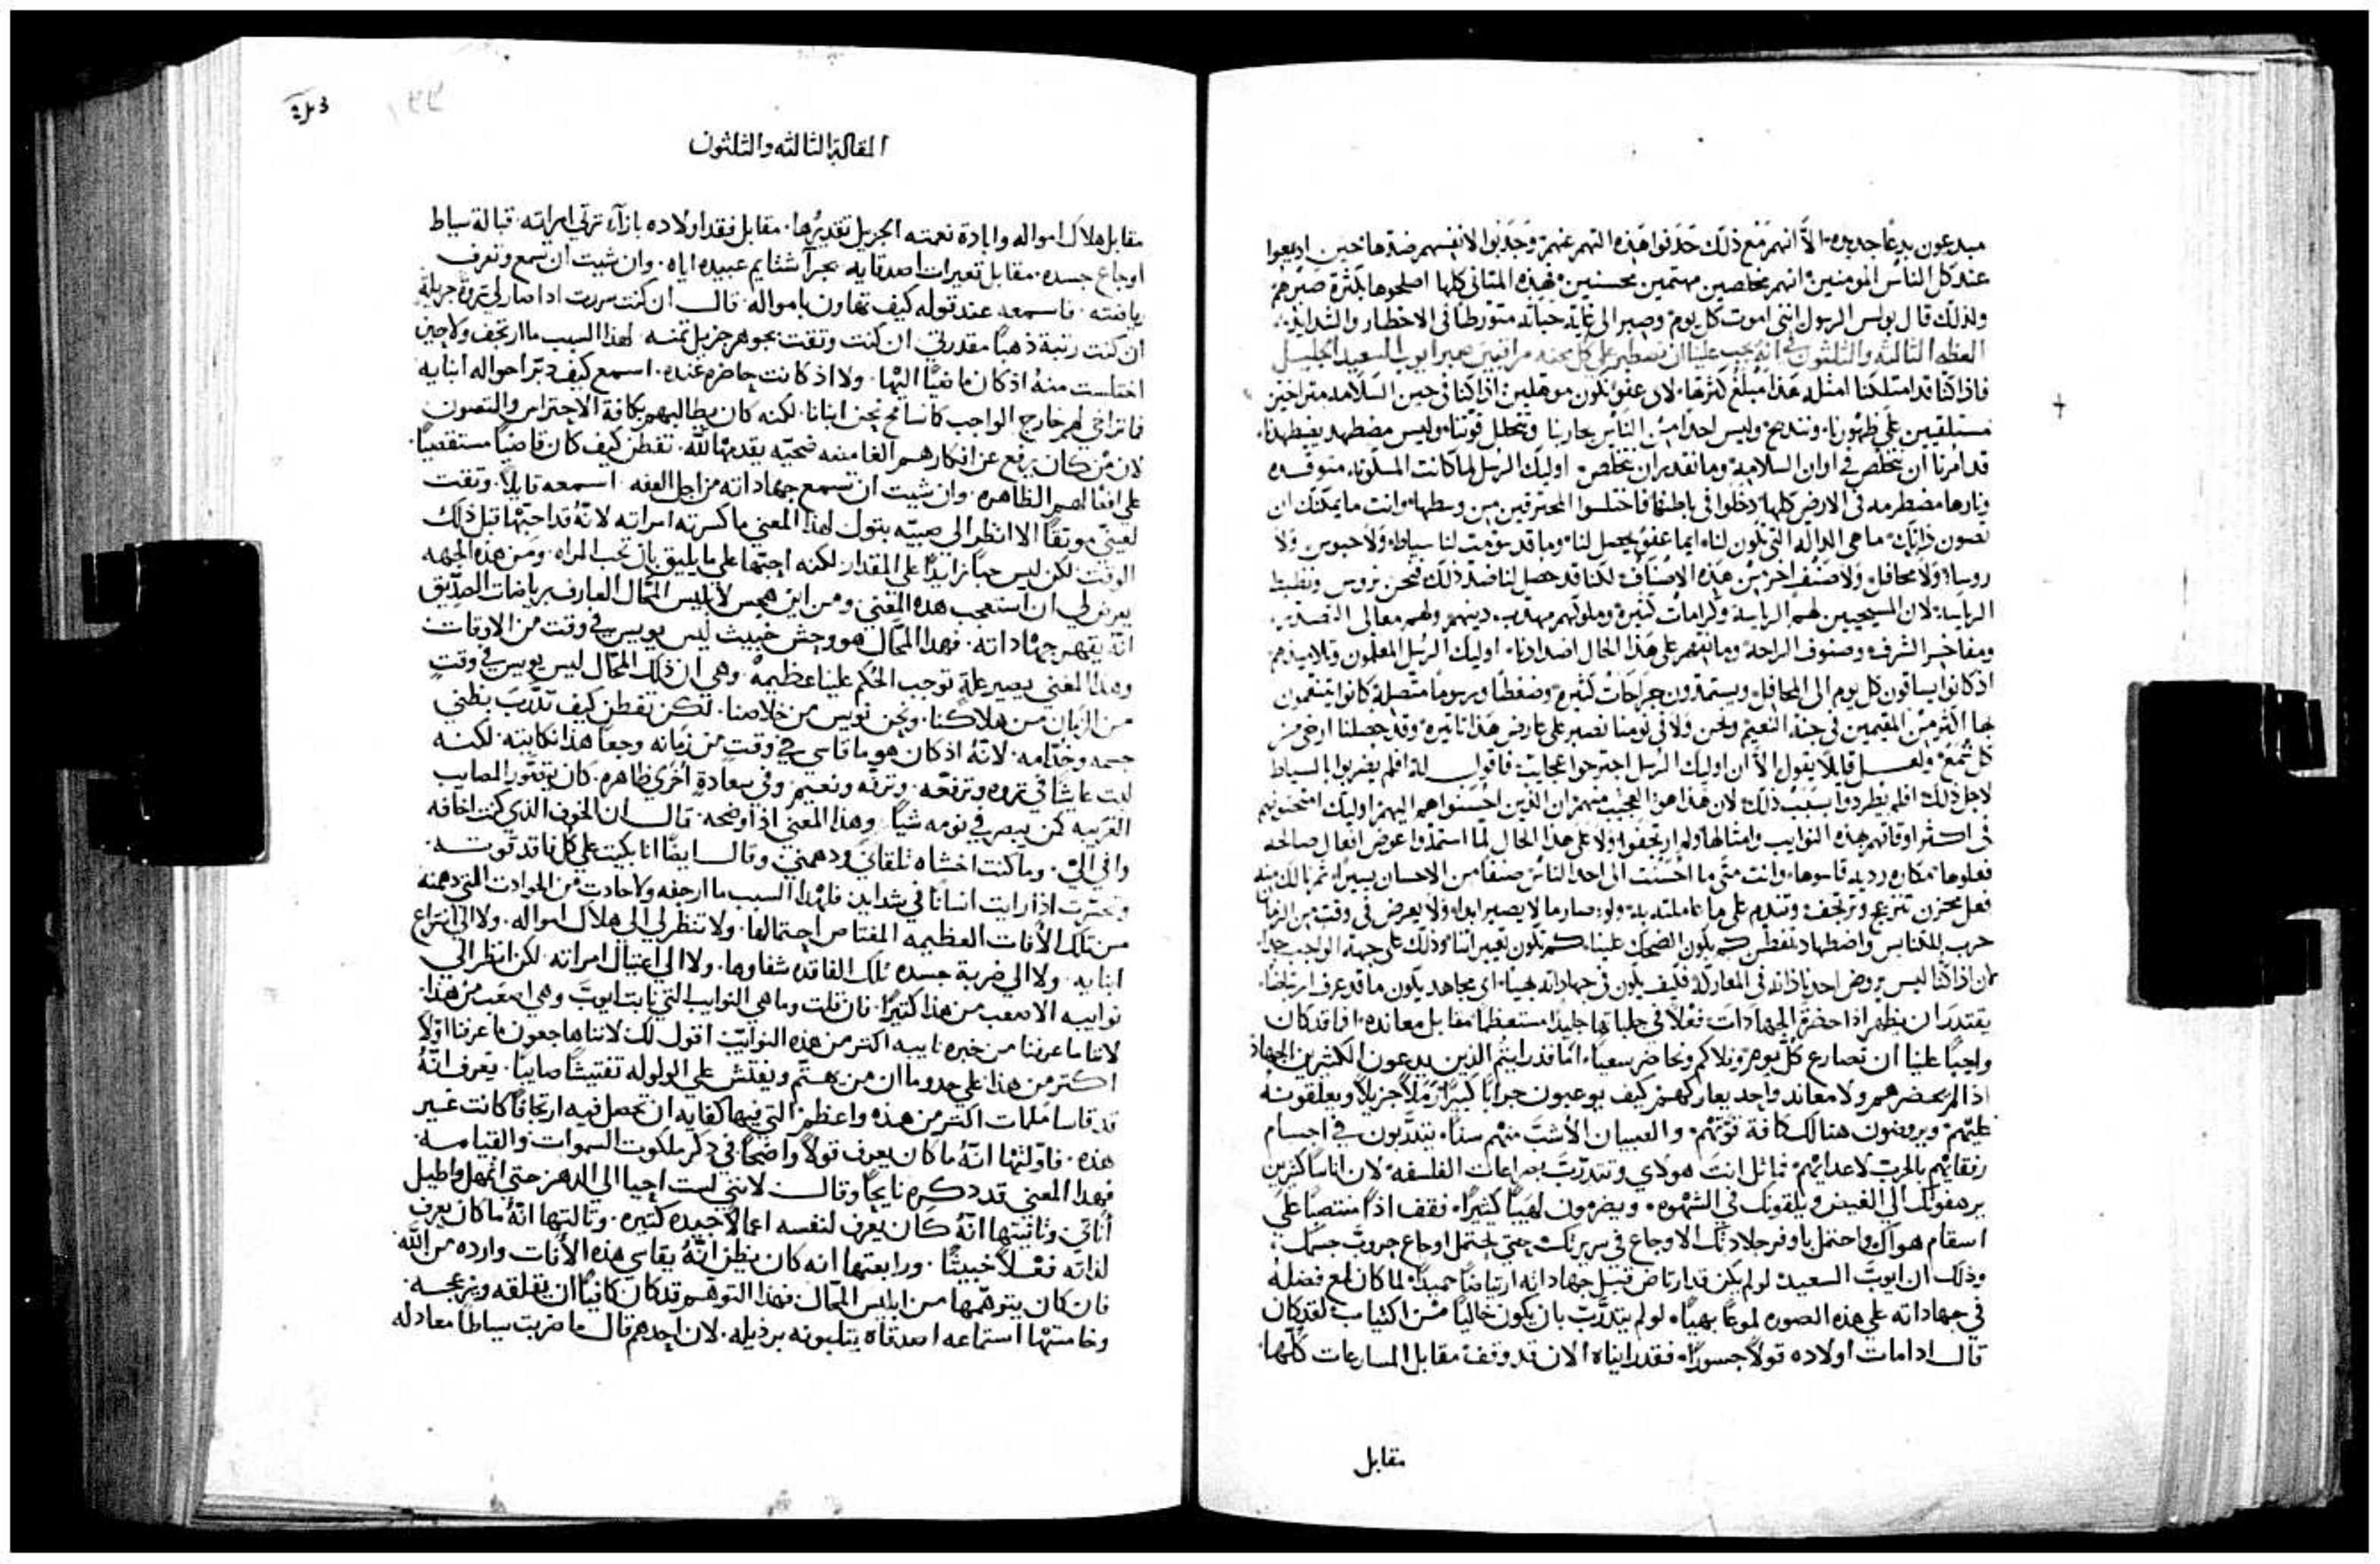 مبدعون بدعًا جديده الا انهم مع ذلك حذفوا هذه التهم عنهم وجذبوا لانفسهم ضدها حين اذيعوا
عند كل الناس المومنين انهم مخلصين مهتمين محسنين فهذه المثاني كلها اصلحوها بكثرة صبرهم
ولذلك قال بولس الرسول انني اموت كل يوم وصبر الى غاية حياته متورطا في الاخطار والشدايد
العظه الثالثه والثلثون في انه يجب علينا ان نصطبر على كل محنه مراقبين صبر ايوب السعيد الجليل
فاذا كنا قد امتلكنا امثله هذا مبلغ كثرتها لاى عفو نكون موهلين اذا كنا في حين السلامه متراخين
مستلقيين على ظهورنا وننذبح وليس احدا من الناس يحاربنا وتتحلل قوتنا وليس مضطهد يضطهدنا
قد امرنا ان نتخلص في اوان السلامه وما نقدر ان نتخلص اوليك الرسل لما كانت المسكونه متوقده
ونارها مضطرمه في الارض كلها دخلوا في باطنها فاختلسوا المحترقين من وسطها وانت ما يمكنك ان
تصون ذاتك ما هى الداله التي تكون لنا ايما عفو يحصل لنا وما قد سوميت لنا سياط ولا حبوس ولا
روسا ولا محافل ولا صنف اخر من هذه الاصناف لكنا قد حصل لنا ضد ذلك فنحن نروس ونضبط
الرياسه لان المسيحيين لهم الرياسه وكرامات كثيره وملوكهم مهذب دينهم ولهم معالى
ومفاخر الشرف وصنوف الراحه وما نقهر على هذا الحال اضدادنا اوليك الرسل المعلمون وتلاميذهم
اذ كانوا يساقون كل يوم الى المحافل ويستمدون جراحات كثيره وضغطا ورسوما متصله كانوا يتنعمون
بها اكثر من المقيمين في جنة النعيم ونحن ولا في نومنا نصبر على عارض هذا تاثيره وقد حصلنا ارخى من
كل شمع ولعل قايلا يقول الا ان اوليك الرسل اجترحوا عجايب فاقول له افلم يضربوا بالسياط
لاجل ذلك افلم يطردوا بسبب ذلك لان هذا هو العجيب منهم ان الذين احسنوا هم اليهم اوليك امتحنوهم
في اكثر اوقاتهم بهذه النوايب وامثالها ولم يرتجفوا ولا على هذا الحال لما استمدوا عوض افعال صالحه
فعلوها مكاره رديه قاسوها وانت متى ما احسنت الى احد الناس صنفا من الاحسان يسيرا ثم نالك منه
فعل محزن تنزعج وترتجف وتندم على ما عاملته به ولو صار ما لا يصير ابدا ولا يعرض في وقت من الزمان
حرب للكنايس واضطهاد تفطن كم يكون الضحك علينا كم تكون تعييراتنا وذلك على جهة الواجب جدا
لان اذا كنا ليس يروض احد ذاته في المعاركه فكيف يكون في جهاداته بهيا اى مجاهد يكون ما قد عرف ارتياضا
يقتدر ان يظهر اذا حضرة الجهادات فعلا في حلباتها جليدا مستعظما مقابل معانده افما قد كان
واجبا علينا ان نصارع كل يوم ونلاكم ونحاضر سعيا اما قد رايتم الذين يدعون الكثيرين الجهاد
اذا لم يحضرهم ولا معاند واحد يعاركهم كيف يوعبون جرابا كبيرا رملا جزيلا ويعلقونه
عليهم ويروضون هنالك كافة قوتهم والصبيان الاشب منهم سنا يتدربون في اجسام
رفقايهم بالحرب لاعدايهم فماثل انت هولاى وتتدرب بصراعات الفلسفه لان اناسا كثيرين
يرهفونك الى الغيض ويلقونك في الشهوه ويضرمون لهيبا كثيرا فقف اذا منتصبا على
اسقام هواك واحتمل باوفر جلادتك الاوجاع في سريرتك حتى تحتمل اوجاع حروب جسمك
وذلك ان ايوب السعيد لو لم يكن قد ارتاض قبل جهاداته ارتياضا حميدا لما كان لمع فضله
في جهاداته على هذه الصوره لموعا بهيا لو لم يتدرب بان يكون خاليا من اكتياب لقد كان
قال اذا مات اولاده قولا جسورا فقد رايناه الان قد وقف مقابل المسارعات كلها
مقابل
المقالة الثالثه والثلثون
مقابل هلاك امواله وابادة نعمته الجزيل تقديرها مقابل فقد اولاده بازآء ترثي امراته قبالة سياط
اوجاع جسده مقابل تعييرات اصدقايه بحرآ شتايم عبيده اياه وان شيت ان تسمع وتعرف
رياضته فاسمعه عند قوله كيف تهاون بامواله قال ان كنت سررت اذا صار لي ثروة جزيلة
ان كنت رتبة ذهبا مقدرتي ان كنت وثقت بجوهر جزيل ثمنه لهذا السبب ما ارتجف ولا حين
اختلست منه اذ كان ماضيا اليها ولا اذ كانت حاضره عنده اسمع كيف دبر احواله ابنايه
فما تراخي لهم خارج الواجب كما نسامح نحن ابنانا لكنه كان يطالبهم بكافة الاحتراس والتصون
لان من كان يرفع عن افكارهم الغامضه ضحيه يقدمها لله تفطن كيف كان قاضيا مستقصيا
على افعالهم الظاهره وان شيت ان تسمع جهاداته من اجل العفه اسمعه قايلا وثقت
لعيني موثقا الا انظر الى صبيه بتول لهذا المعني ما كسرته امراته لانه قد احبها قبل ذلك
الوقت لكن ليس حبا زايدا على المقدار لكنه احبها على ما يليق بان تحب المراه ومن هذه الجهه
يعرض لي ان استعجب هذه المعني ومن اين هجس لابليس المحال العارف برياضات الصديق
انه يقهر جهاداته فهذا المحال هو وحش خبيث ليس يويس في وقت من الاوقات
وهذا المعني يصير علة توجب الحكم علينا عظيمه وهي ان ذلك المحال ليس يويس في وقت
من الزمان من هلاكنا ونحن نويس من خلاصنا لكن تفطن كيف تدرب بظني
جسمه وخدامه لانه اذ كان هو ما قاسى في وقت من زمانه وجعا هذا نكايته لكنه
لبث عايشا في ثروه وترفه وتنزه ونعيم وفي سعادة اخري ظاهره كان يتصور المصايب
الغريبه كمن يبصر في نومه شيا وهذا المعني اذ اوضحه قال ان الخوف الذي كنت اخافه
وافي الي وما كنت اخشاه تلقاني ودهمني وقال ايضا انا بكيت على كل فاقد قوته
وتحسرت اذا رايت انسانا في شدايد فلهذا السبب ما ارجفه ولا حادث من الحوادث التي دهمته
من تلك الافات العظيمه المعتاص احتمالها ولا تنظر لي الى هلاك امواله ولا الى انتزاع
ابنايه ولا الى ضربة جسده تلك الفاقده شفاوها ولا الى اغتيال امراته لكن انظر الى
نوايبه الاصعب من هذا كثيرا فان قلت وما هي النوايب التي نابت ايوب وهي اصعب من هذا
لاننا ما عرفنا من خبره نايبه اكثر من هذه النوايب اقول لك لاننا هاجعون ما عرفنا اولا
اكثر من هذا على حدوما ان من يهتم ويفتش على الولوله تفتيشا صايبا يعرف انه
قد قاسا ملمات اكثر من هذه واعظم التي فيها كفايه ان تحصل فيه ارتجافا كانت غير
هذه فاولتها انه ما كان يعرف قولا واضحا في ذكر ملكوت السموات والقيامه
فهذا المعني قد ذكره نايحا وقال لانني لست احيا الى الدهر حتى اتمهل واطيل
اناتى وثانيتها انه كان يعرف لنفسه اعمالا جيده كثيره وثالثتها انه ما كان يعرف
لذاته فعلا خبيثا ورابعتها انه كان يظن انه يقاسي هذه الافات وارده من الله
فان كان يتوهمها من ابليس المحال فهذا التوهم قد كان كافيا ان يقلقه ويزعجه
وخامستها استماعه اصدقاه يثلبونه برذيله لان احدهم قال ما ضربت سياطا معادله